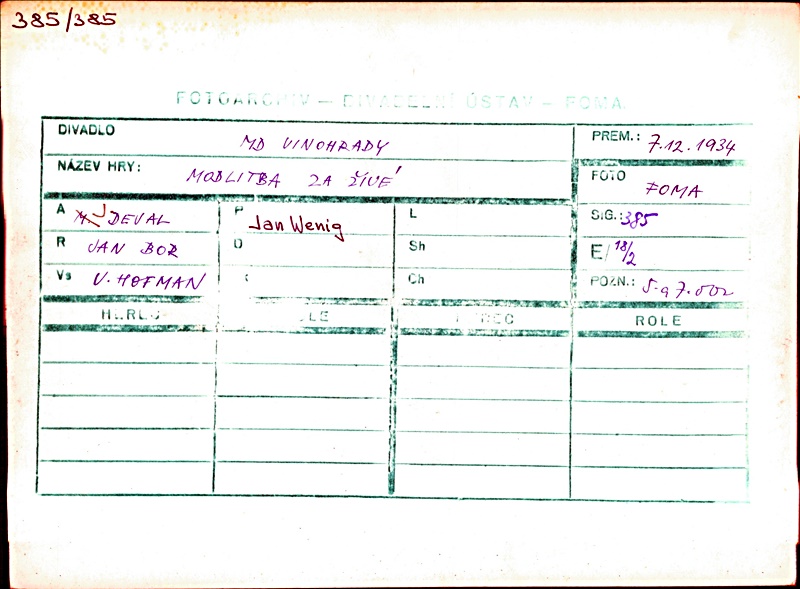 385/385
FOTOARCHIV — DIVADELNÍ ÚSTAV — FOMA
DIVADLO MD VINOHRADY PREM.: 7.12.1934
NÁZEV HRY: MODLITBA ZA ŽIVÉ FOTO FOMA
A J DEVAL P Jan Wenig L SIG.: 385
R JAN BOR O Sh E/ 18/2
Vs V. HOFMAN Ch POZN.:
ROLE